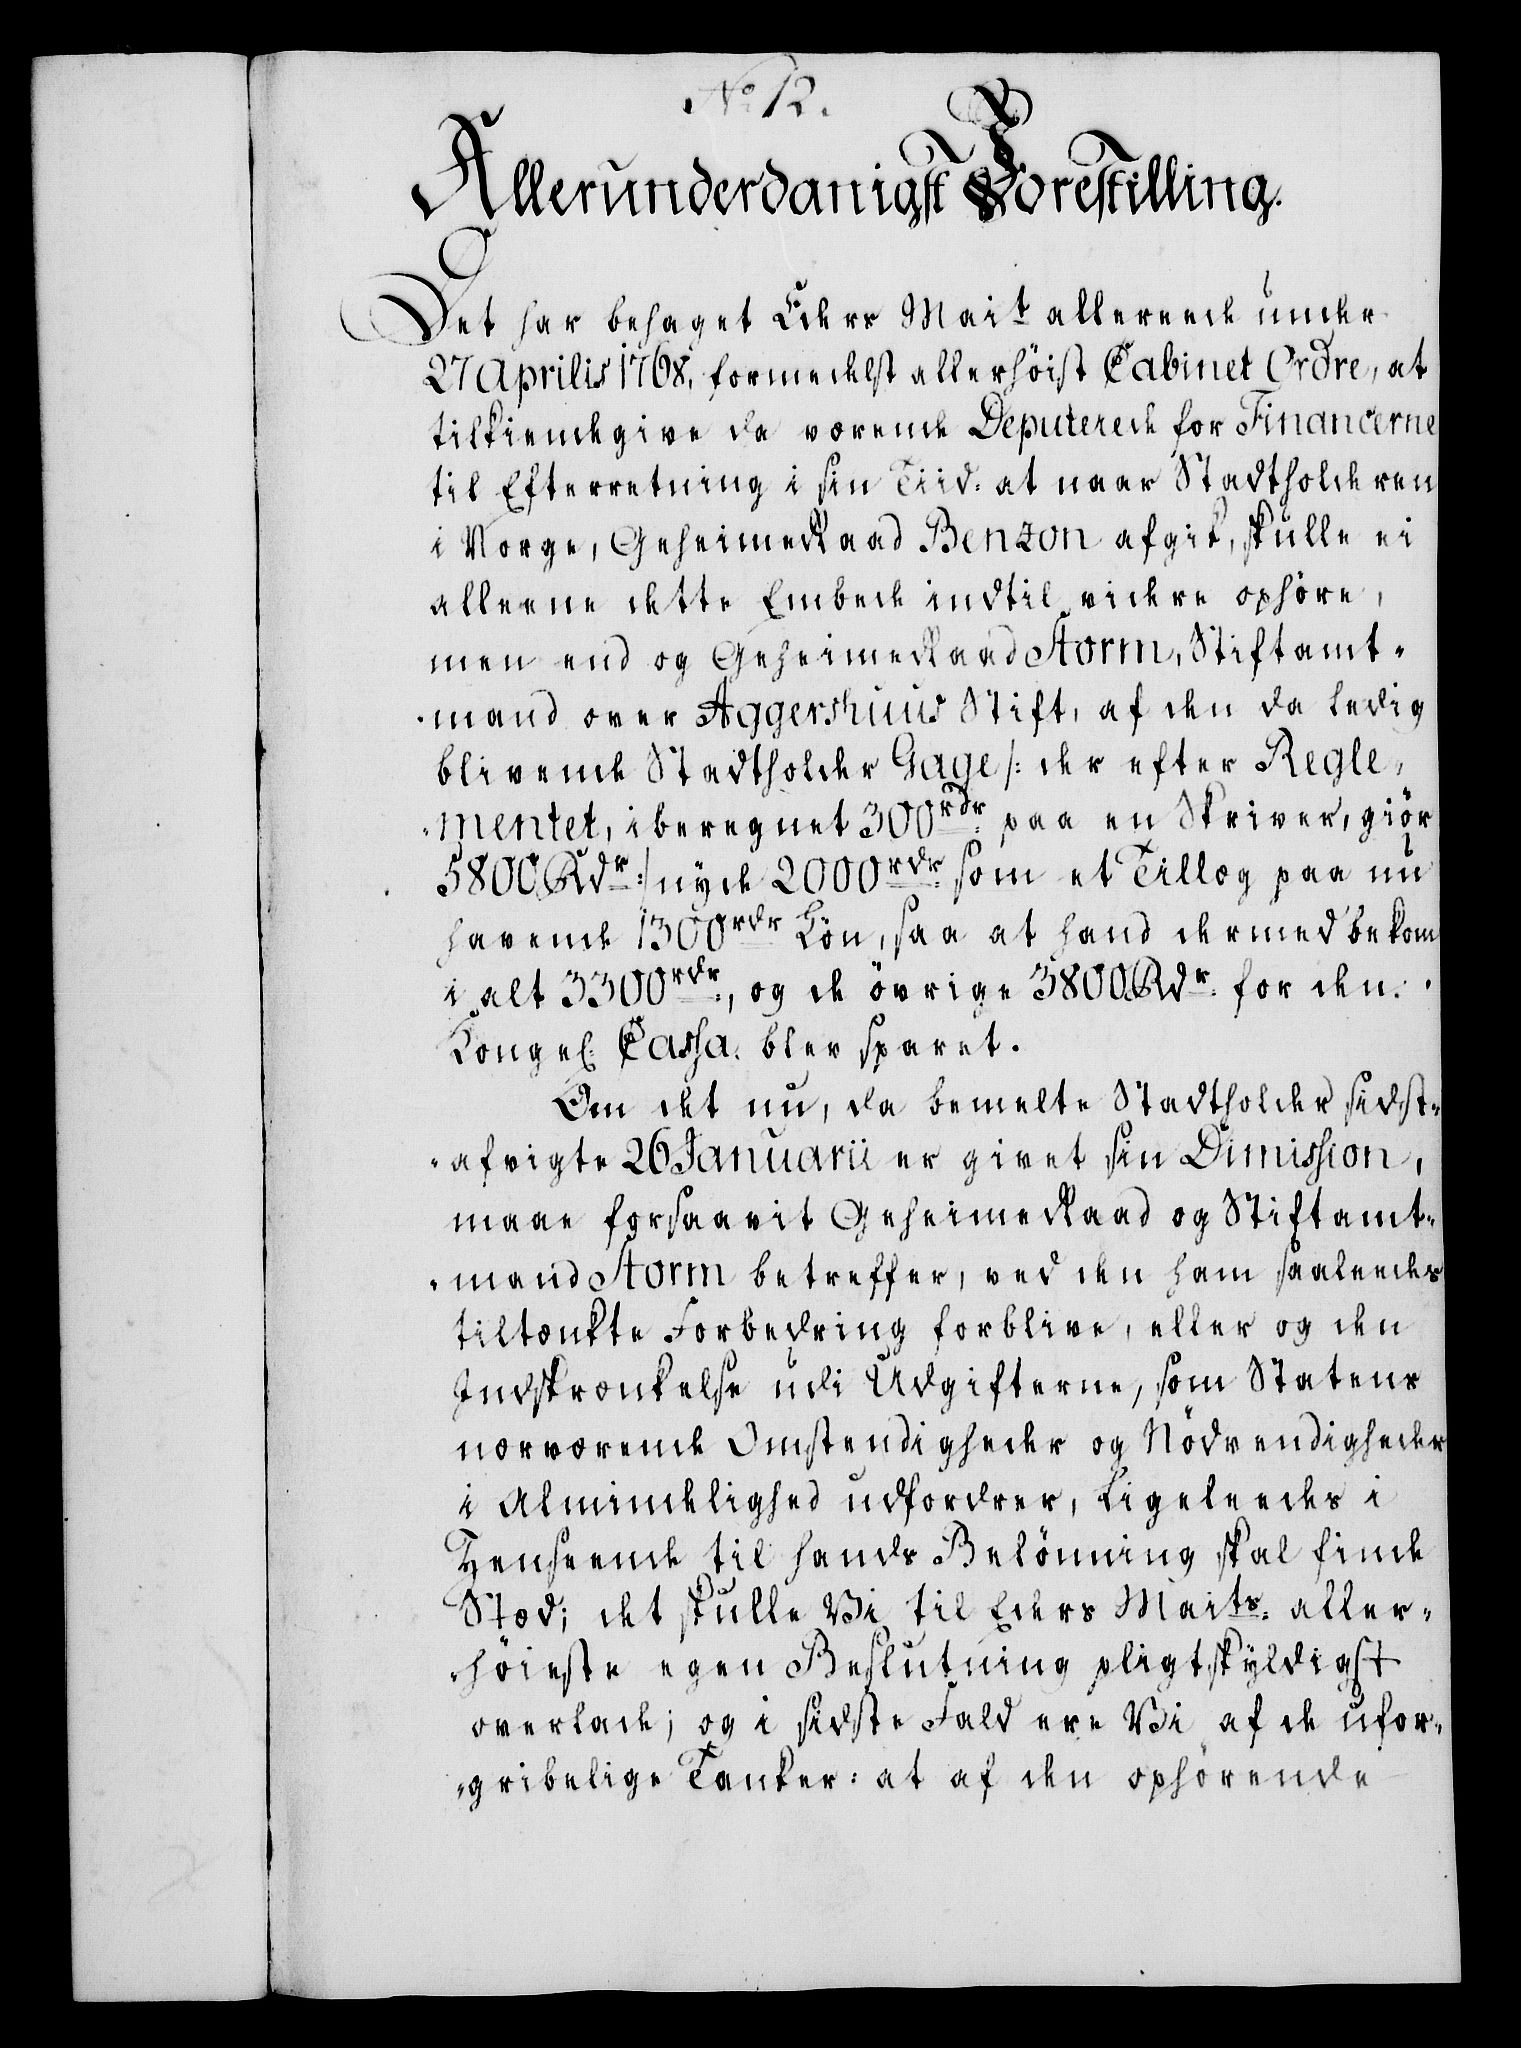 No 12.
Allerunderdanigst Forestilling.
Det har behaget Eders Mait allereede under
27 Aprilis 1768, formedelst allerhöist Cabinet Ordre, at
tilkiendegive da værende Deputerede for Financerne
til Efterretning i sin Tiid: at naar Stadtholderen
i Norge, Geheimeraad Benzon afgik, skulle ei
alleene dette Embede indtil videre ophöre,
men end og Geheimeraad Storm, Stiftamt-
-mand over Aggershuus Stift, af den da ledig
blivende Stadtholder Gage /: der efter Regle-
-mentet, iberegnet 300rdr. paa en Skriver, giör
5800 Rdr :/ nyde 2000rdr som et Tillæg paa nu
havende 1300rdr Lön, saa at hand dermed bekom
i alt 3300rdr, og de övrige 3800 Rdr. for den
Kongel. Cassa blev sparet.
Om det nu, da bemelte Stadtholder sidst-
-afvigte 26 Januarii er givet sin Dimission,
maae forsaavit Geheimeraad og Stiftamt-
-mand Storm betreffer, ved den ham saaleedes
tiltænkte Forbedring forblive, eller og den
Indskrænkelse udi Udgifterne, som Statens
nærværende Omstendigheder og Nödvendigheder
i Almindelighed udfordrer, ligeleedes i
Henseende til hands Belönning skal finde
Stæd; det skulle Vi til Eders Maits. aller-
-höieste egen Beslutning pligtskyldigst
overlade; og i sidste Fald ere Vi af de ufor-
-gribelige Tanker: at af den ophörende